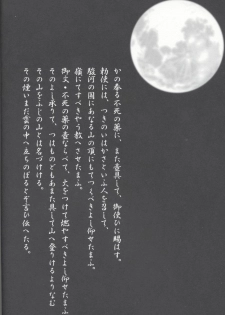 かの奉る不死の薬に、また壺具して、御使ひに賜はす。
勅使には、つきのいはかさといふ人を召して、
駿河の国にあなる山の頂にもてつくべきよし仰せたまふ。
嶺にてすべきやう教へさせたまふ。
御文・不死の薬の壺ならべて、火をつけて燃やすべきよし仰せたまふ。
そのよし承りて、つはものどもあまた具して山へ登りけるよりなむ
その山をふじの山とは名づけける。
その煙いまだ雲の中へ立ちのぼるとぞ言ひ伝へたる。